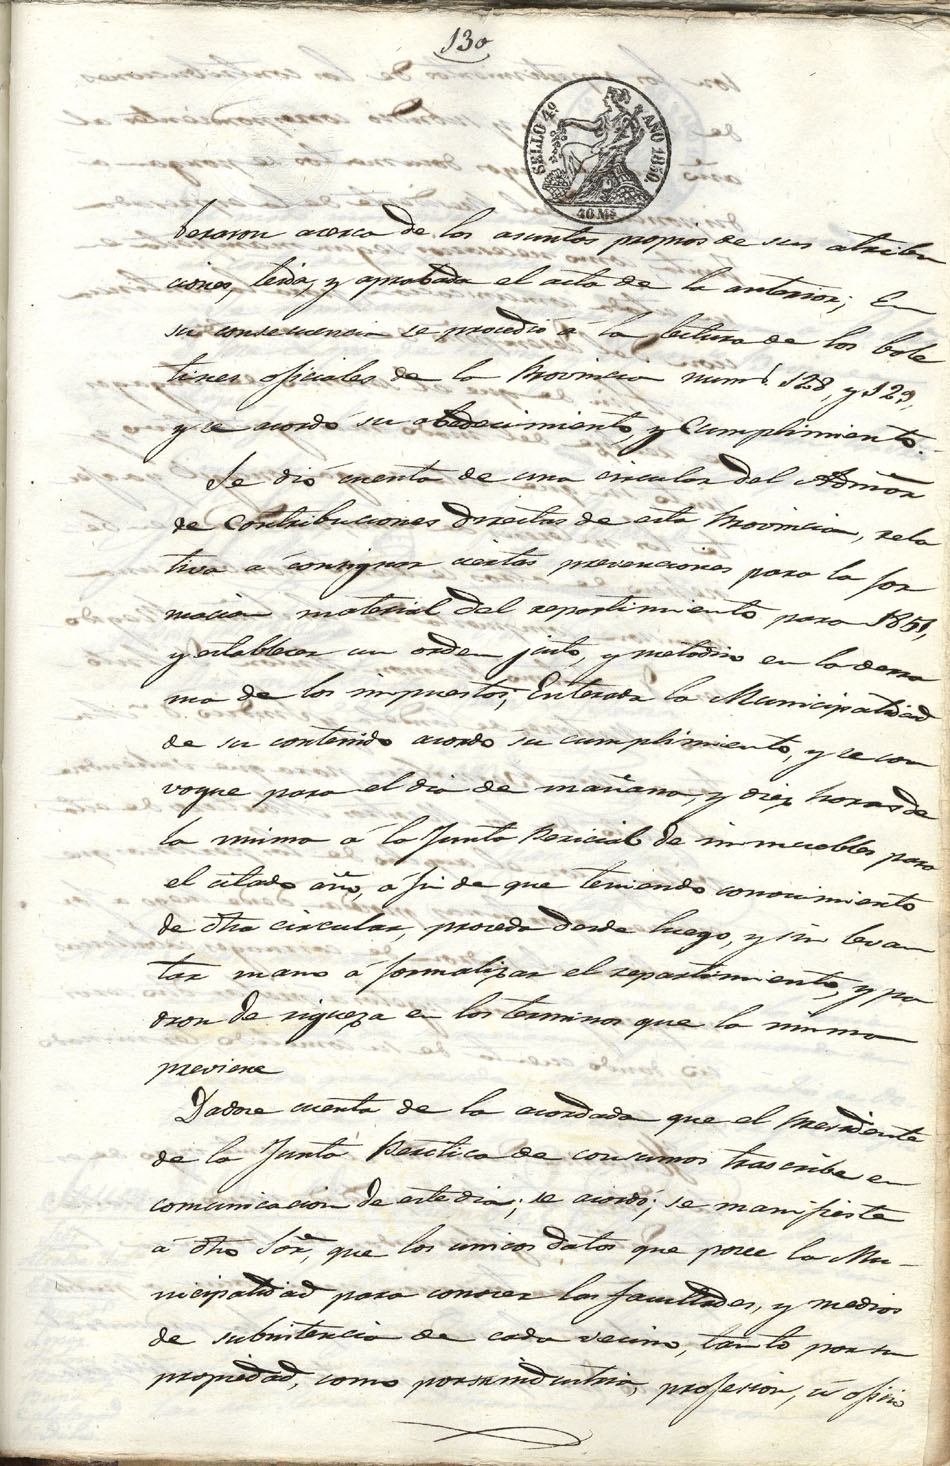 130
SELLO 4º AÑO 1850.
40 Ms
beraron acerca de los asuntos propios de sus atribu
ciones, leida, y aprobada el acta de la anterior; En
su consecuencia se procedió á la lectura de los bole
tines oficiales de la Provincia num.s 128, y 129,
y se acordó su obedecimiento, y Cumplimiento.
Se dió cuenta de una circular del Admõr
de Contribuciones directas de esta Provincia, rela
tiva á consignar ciertas prevenciones para la for
macion material del repartimiento para 1851,
y establecer un orden justo, y metodico en la derra
ma de los impuestos; Enterada la Municipalidad
de su contenido acordó su cumplimiento, y se con
voque para el dia de mañana, y diez horas de
la misma á la Junta Pericial de inmuebles para
el citado año, á fin de que teniendo conocimiento
de dha circular, proceda desde luego, y sin levan
tar mano á formalizar el repartimiento, y pa
dron de riqueza en los terminos que la misma
previene
Dadose cuenta de la acordada que el Presidente
de la Junta Peritica de consumos trascribe en
comunicacion de este dia; se acordó; se manifieste
á dho Sõr, que los unicos datos que posee la Mu-
nicipalidad para conocer las facultades, y medios
de subsistencia de cada vecino, tanto por su
propiedad, como por su industria, profesion, ú oficio